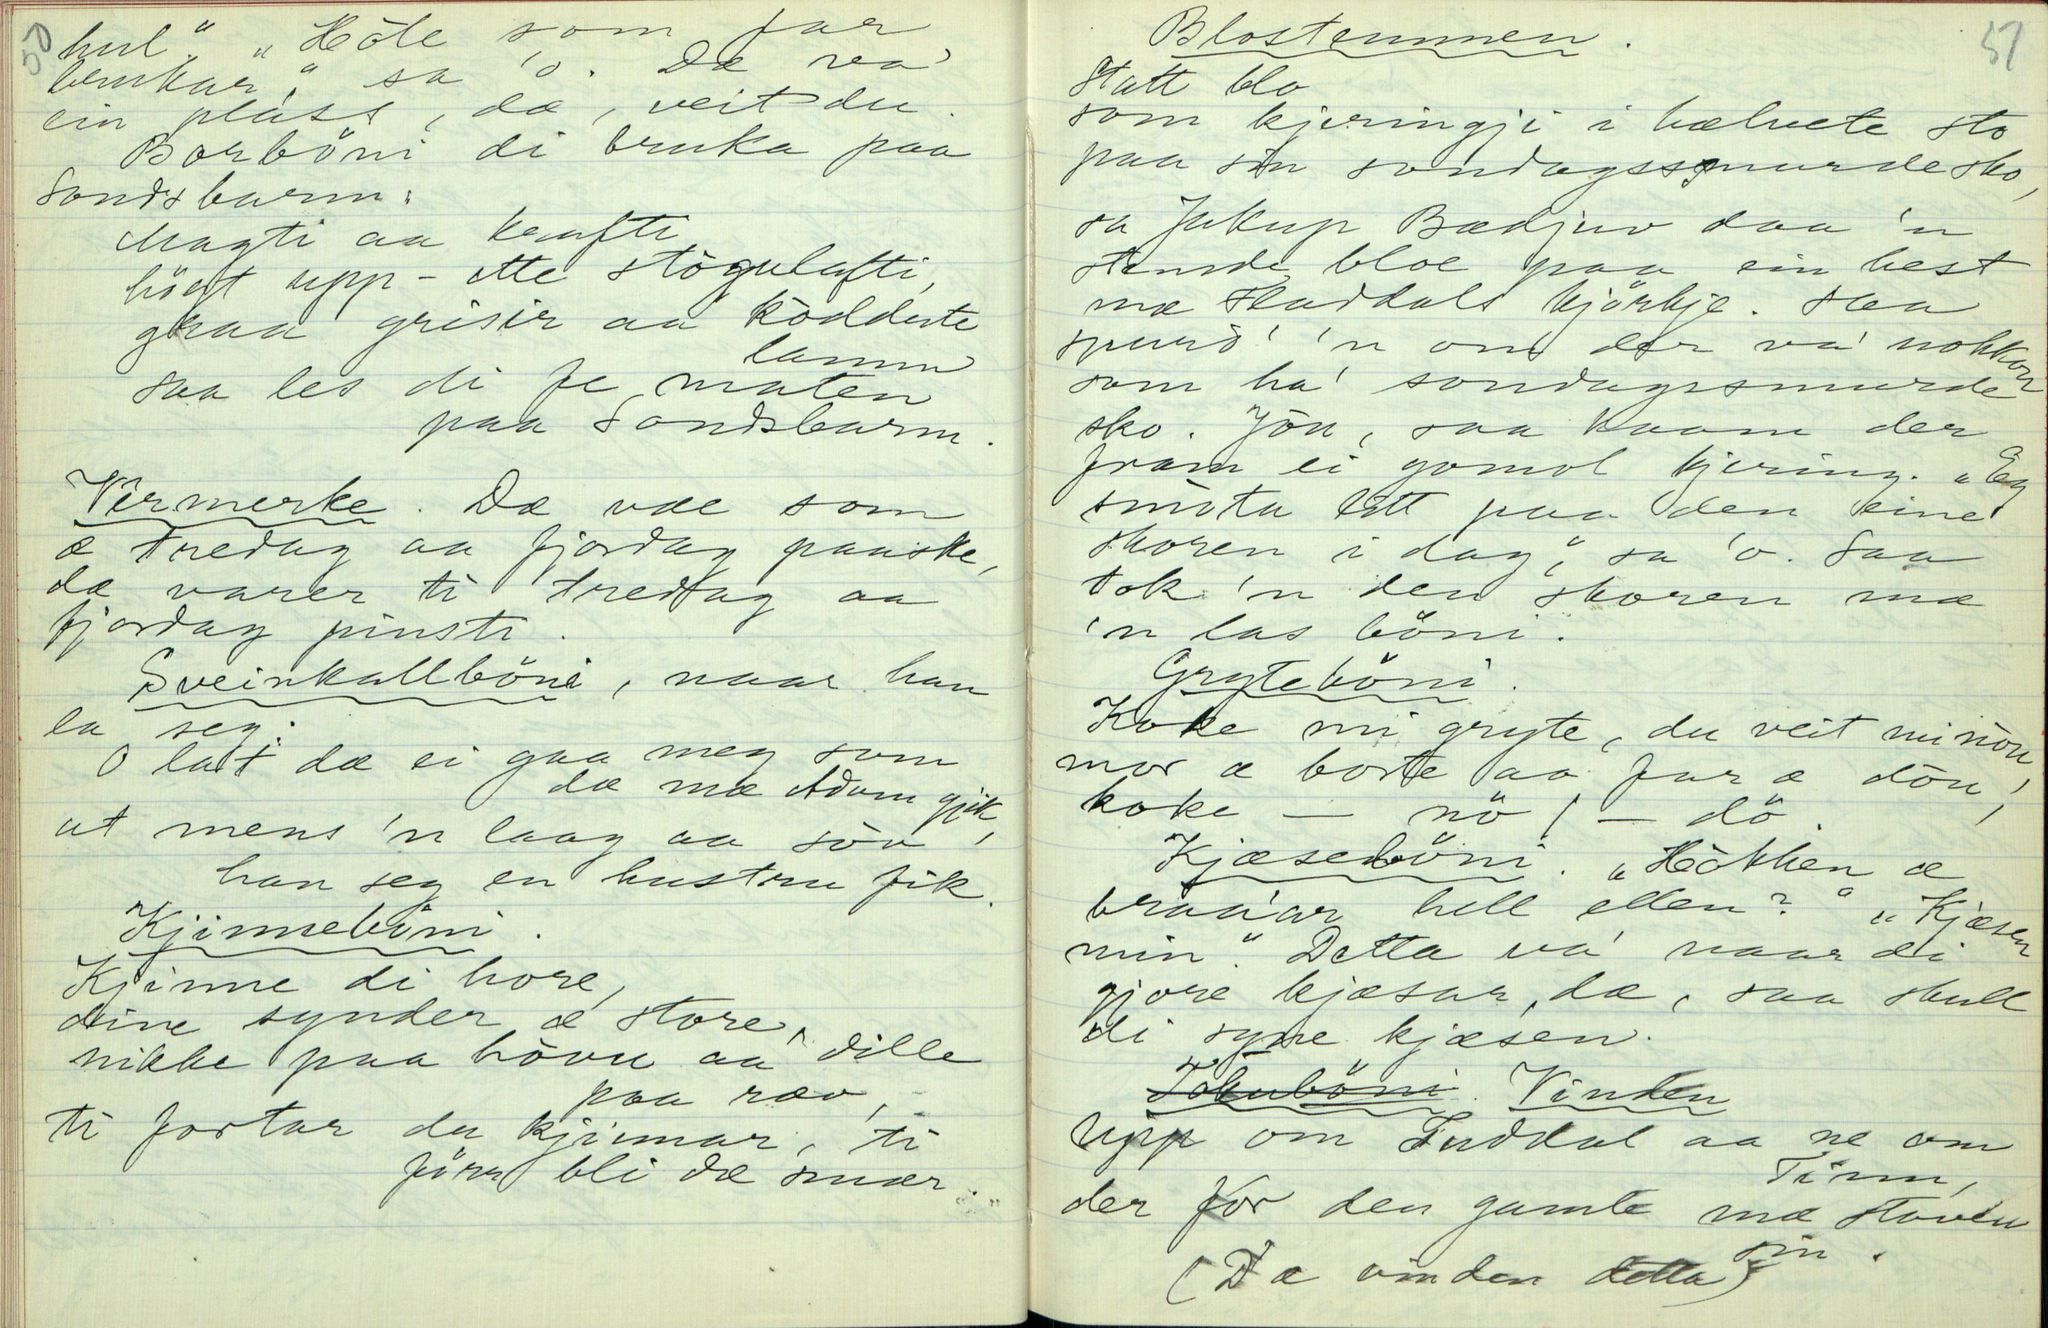 50
hul". "Hôle som far
brukar", sa 'o. Dæ va'
ein plass, dæ, veit du.
Borböni di bruka paa
Sondsbarm:
Magti aa krafti
högt upp - ette stögulofti,
graa grisir aa kodderte
lamm
saa les di fe maten
paa Sondsbarm.
Vêrmerke. Dæ væe som
æ tredag aa fjordag paaske,
dæ varer ti tredag aa
fjordag pinsti.
Sveinkallböni, naar han
la seg:
O lat dæ ei gaa meg som
dæ mæ Adam gjik,
at mens 'n laag aa söv,
han seg en hustru fik.
Kjinneböni.
Kjinne di hore,
dine synder æ store,
nikke paa hövu aa dille
paa ræv,
ti fortar du kjinnar, ti
förr bli dæ smær.
51
Blostemmen.
Statt blo
som kjeringji i hælvete sto
paa sin sondagssmurde sko,
sa Jakup Bædjuv daa 'n
stemde bloe paa ein hest
mæ Hæddals kjörkje. Saa
spurd' 'n om der va' nokkon
som ha' sondagssmurde
sko. Jöu, saa kaam der
fram ei gomol kjering. "Eg
smurta litt paa den eine
skoren i dag", sa 'o. Saa
tok 'n den skoren mæ
'n las böni.
Gryteböni.
Koke mi gryte, du veit mi nöu,
mor æ borte aa far æ döu,
koke — nö! — dö.
Kjæseböni. "Hôkken æ
braa'ar hell ellen?" "Kjæsen
min". Detta va' naar di
gjore kjæsar, dæ, saa skull
di syne kjæsen.
Tokuböni. Vinden
Upp om Tuddal aa ne om
Tinn,
der for den gamle mæ staven
sin.
(Dæ vinden detta)